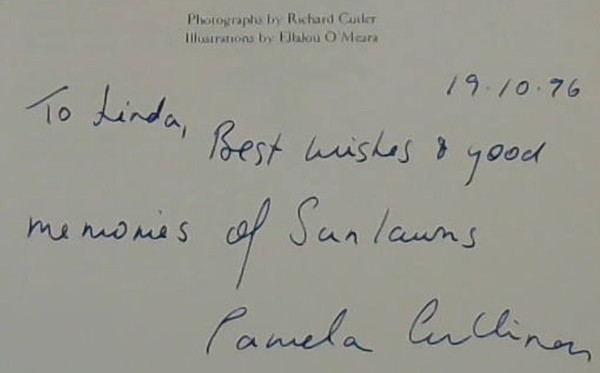 Photographs by Richard Cutler
Illustrations by Ellalou O Meara
19.10.96
To Linda,
Best wishes & good
memories of Sunlawns
Pamela Cullinan